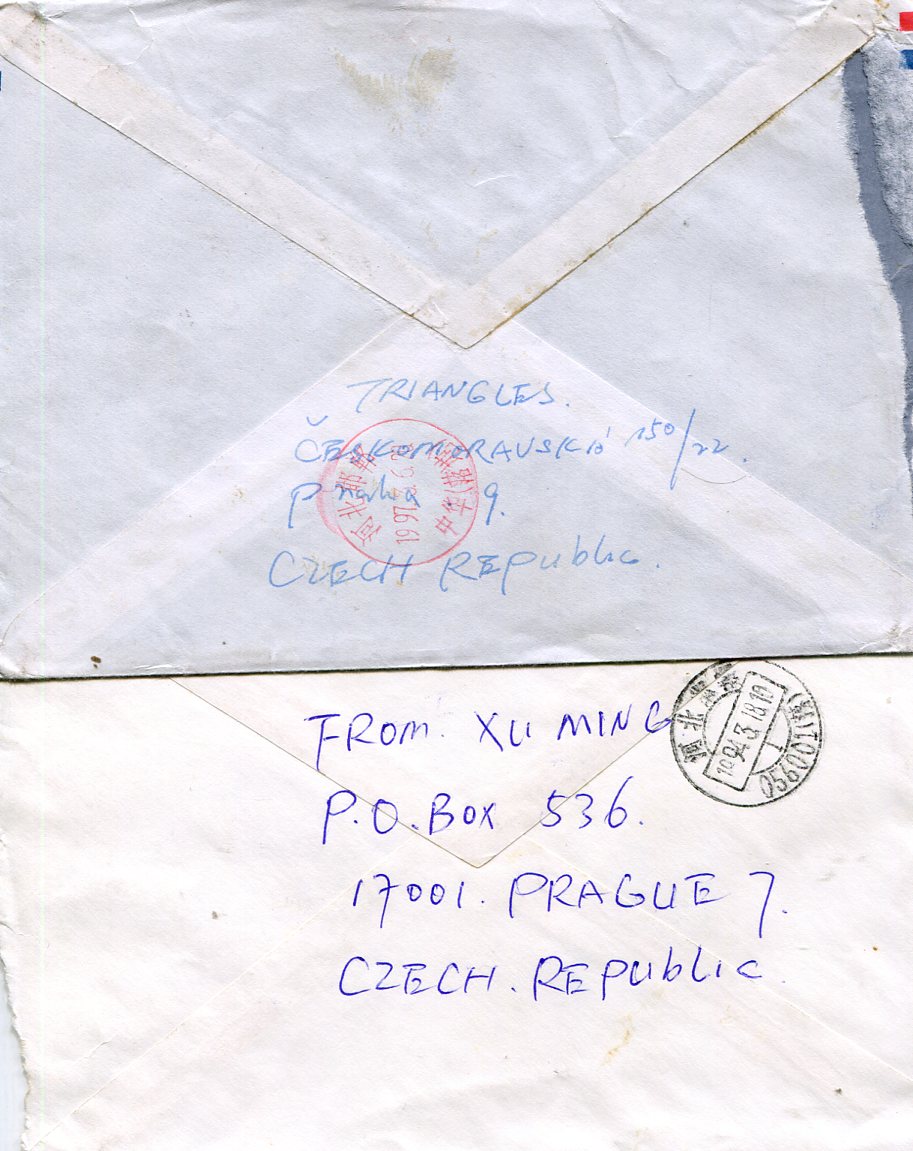 TRIANGLES.
ČESKOMORAVSKÁ 150/22.
Praha 9.
CZECH REPublic.
河北邯郸
1997
中华
FROM: XU MING
P.O. Box 536.
17001. PRAGUE 7.
CZECH. REPublic
河北邯郸
1994.3.18.19
056001